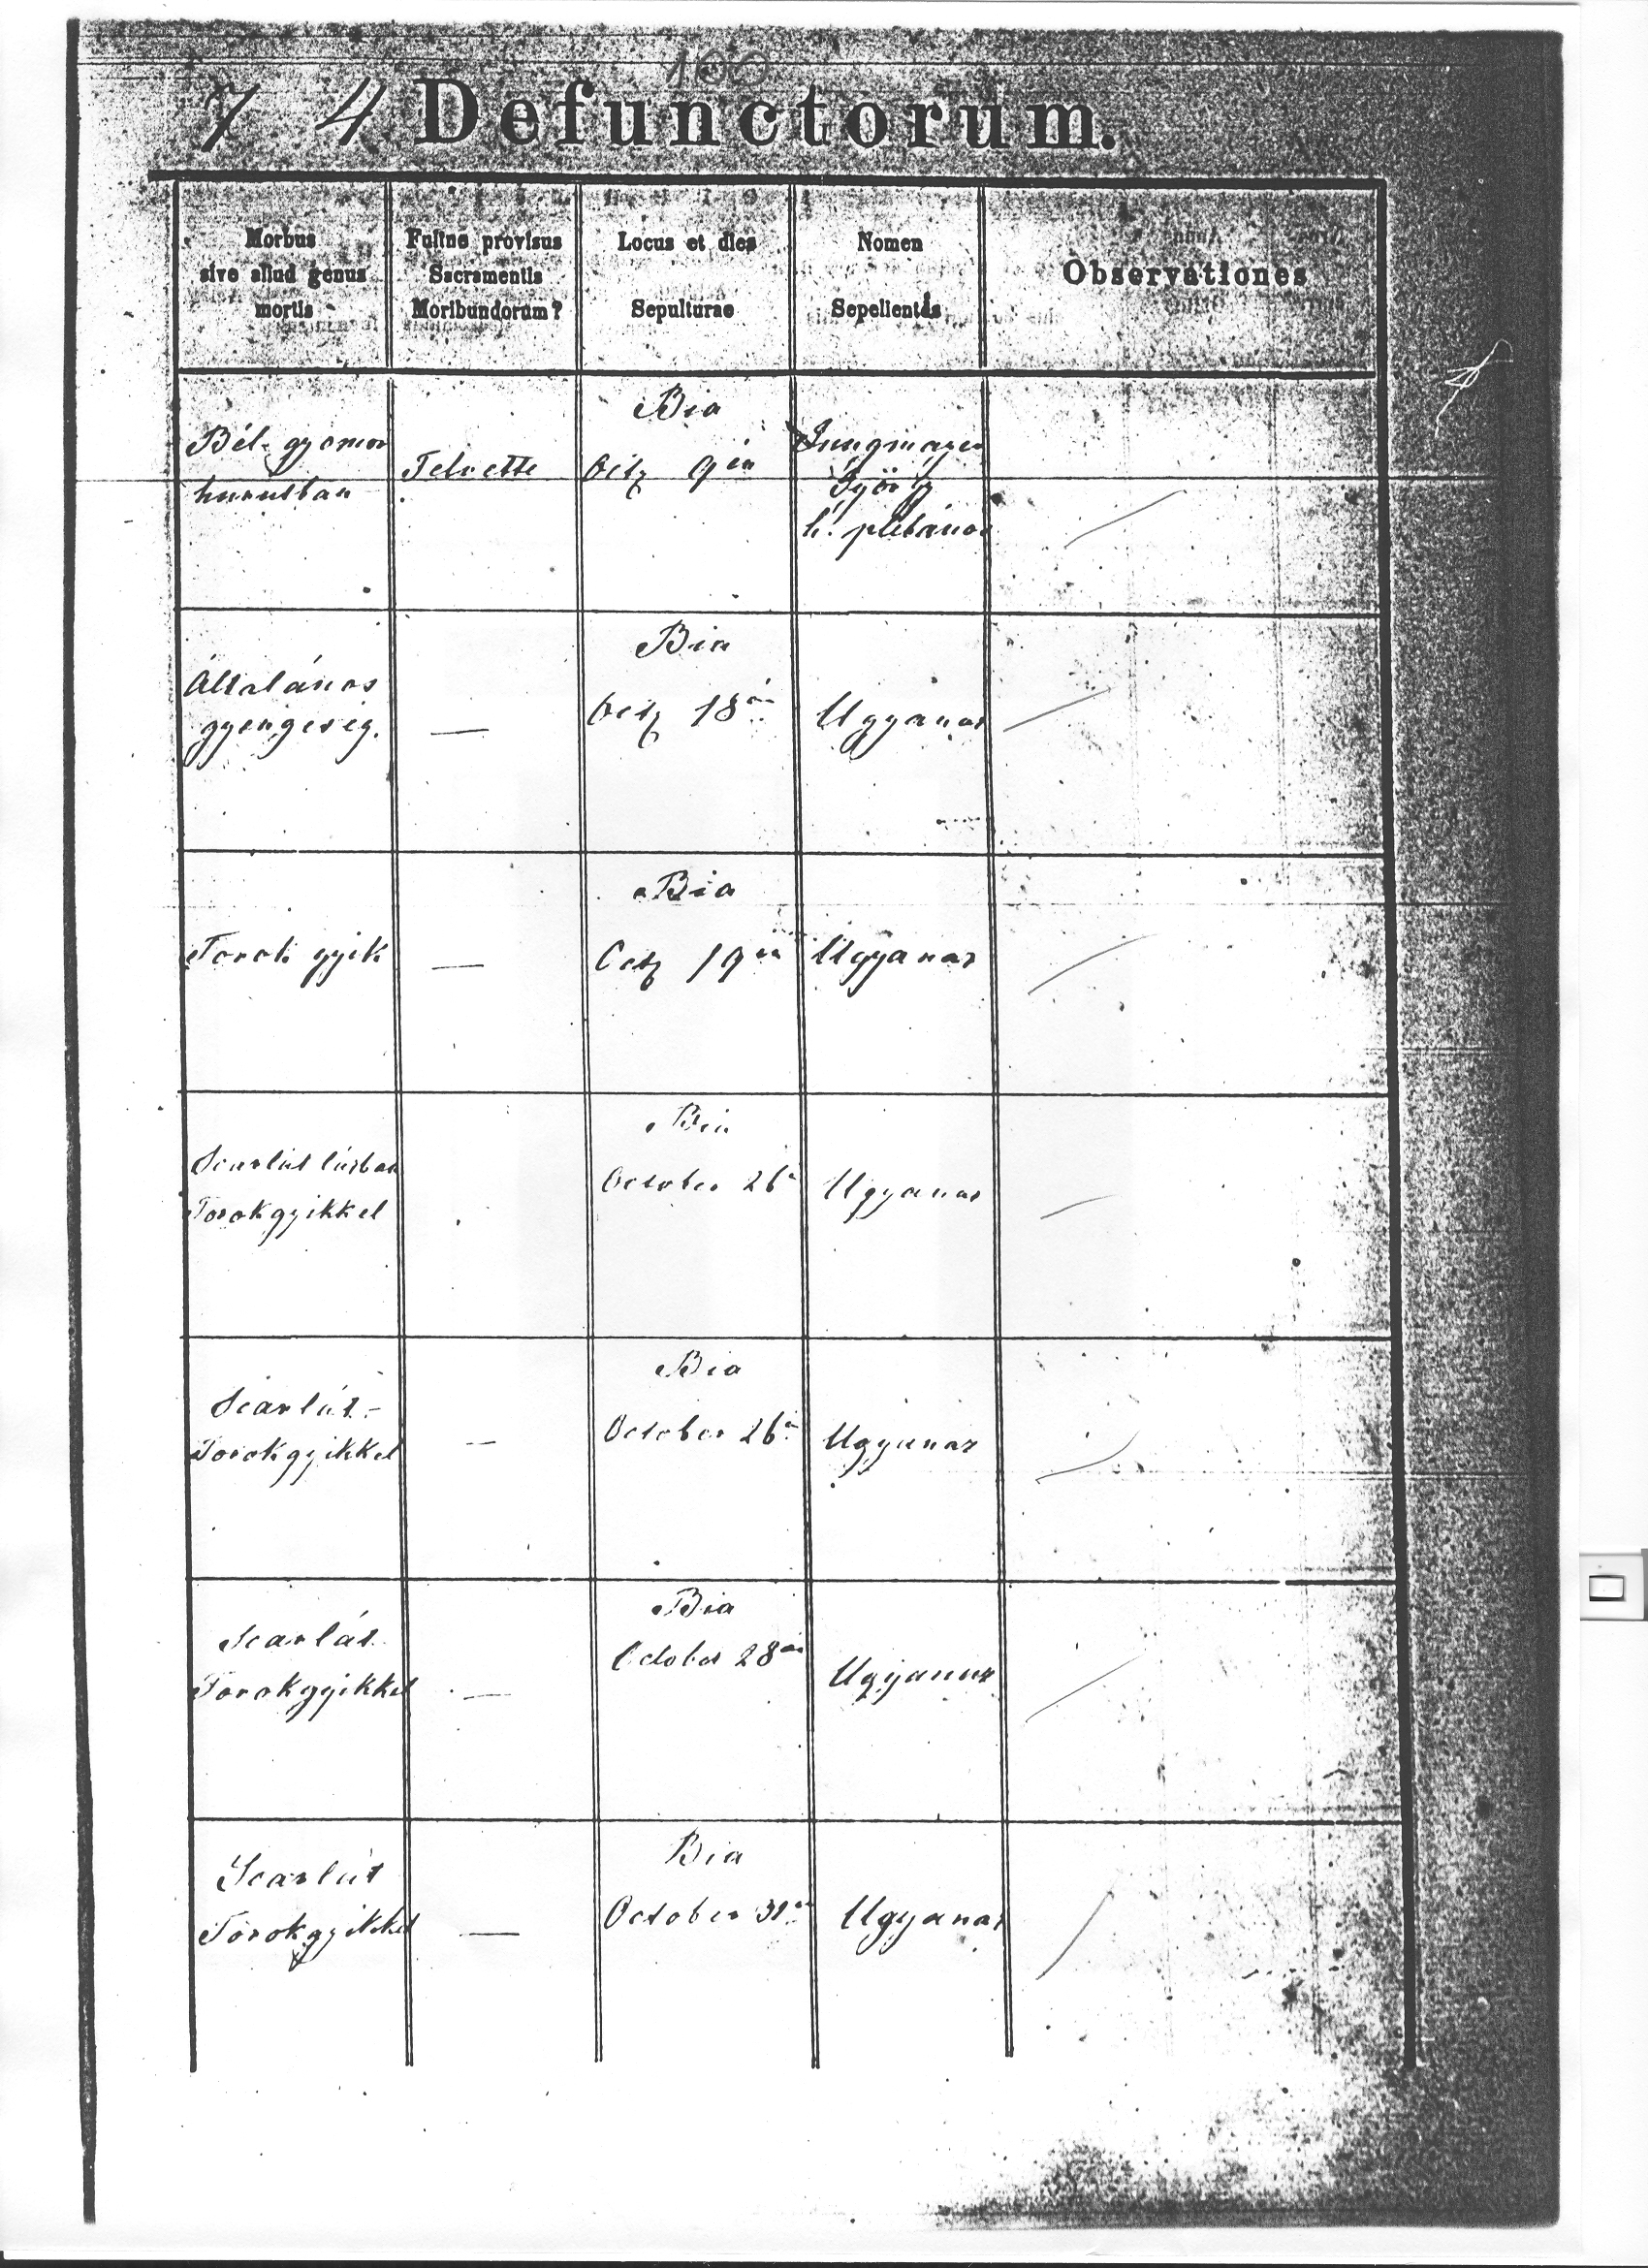 100
7 4 Defunctorum.
Morbus
sive aliud genus
mortis
Fuitne provisus
Sacramentis
Moribundorum?
Locus et dies
Sepulturae
Nomen
Sepelientis
Observationes
Bél-gyomor
hurutban
Felvette
Bia
Octz 9én
Jungmayer
György
h. plébános
Általános
gyengeség.
—
Bia
Octz 18án
Ugyanaz
Torok gyik
—
Bia
Octz 19én
Ugyanaz
Scarlát lázban
Torokgyikkel
Bia
October 26
Ugyanaz
Scarlát-
Torokgyikkel
—
Bia
October 26
Ugyanaz
Scarlát
Torokgyikkel
—
Bia
October 28án
Ugyanaz
Scarlát
Torokgyikkel
—
Bia
October 31
Ugyanaz